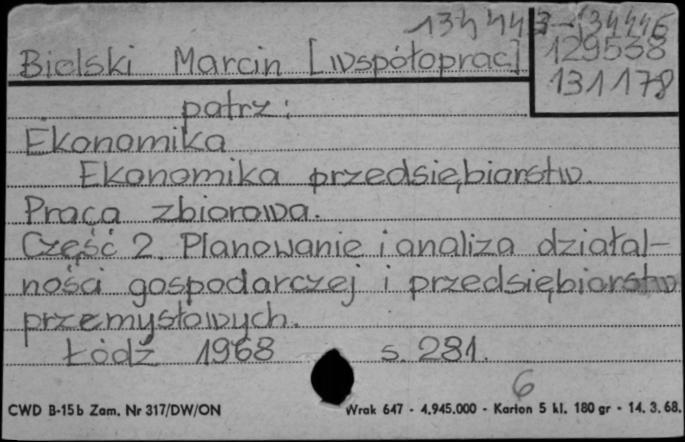 134443-134446
Bielski Marcin [współoprac] 129538
131178
patrz:
Ekonomika
Ekonomika przedsiębiorstw.
Praca zbiorowa.
Część 2. Planowanie i analiza działal-
ności gospodarczej i przedsiębiorstw
przemysłowych.
Łódź 1968 s. 281.
6
CWD B-15b Zam. Nr 317/DW/ON Wrak 647 - 4.945.000 - Karton 5 kl. 180 gr - 14. 3. 68.